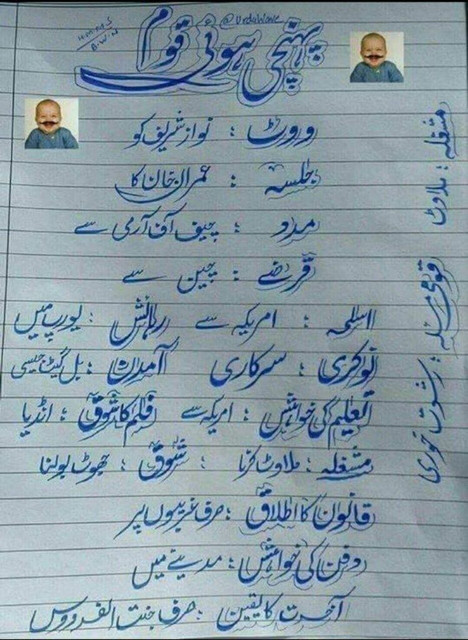 @UrduWave
پہنچی ہوئی قوم
ووٹ : نواز شریف کو
جلسہ : عمران خان کا
مدد : چیف آف آرمی سے
قرضے : چین سے
اسلحہ : امریکہ سے رہائش : یورپ میں
نوکری : سرکاری آمدن : بل گیٹ جیسی
تعلیم کی خواہش : امریکہ سے فلم کا شوق : انڈیا
مشغلہ : ملاوٹ کرنا : شوق : جھوٹ بولنا
قانون کا اطلاق : صرف غریبوں پر
دفن کی خواہش : مدینے میں
آخرت کا یقین : صرف جنت الفردوس
مشغلہ : ملاوٹ
قومی مسلہ : رشوت خوری